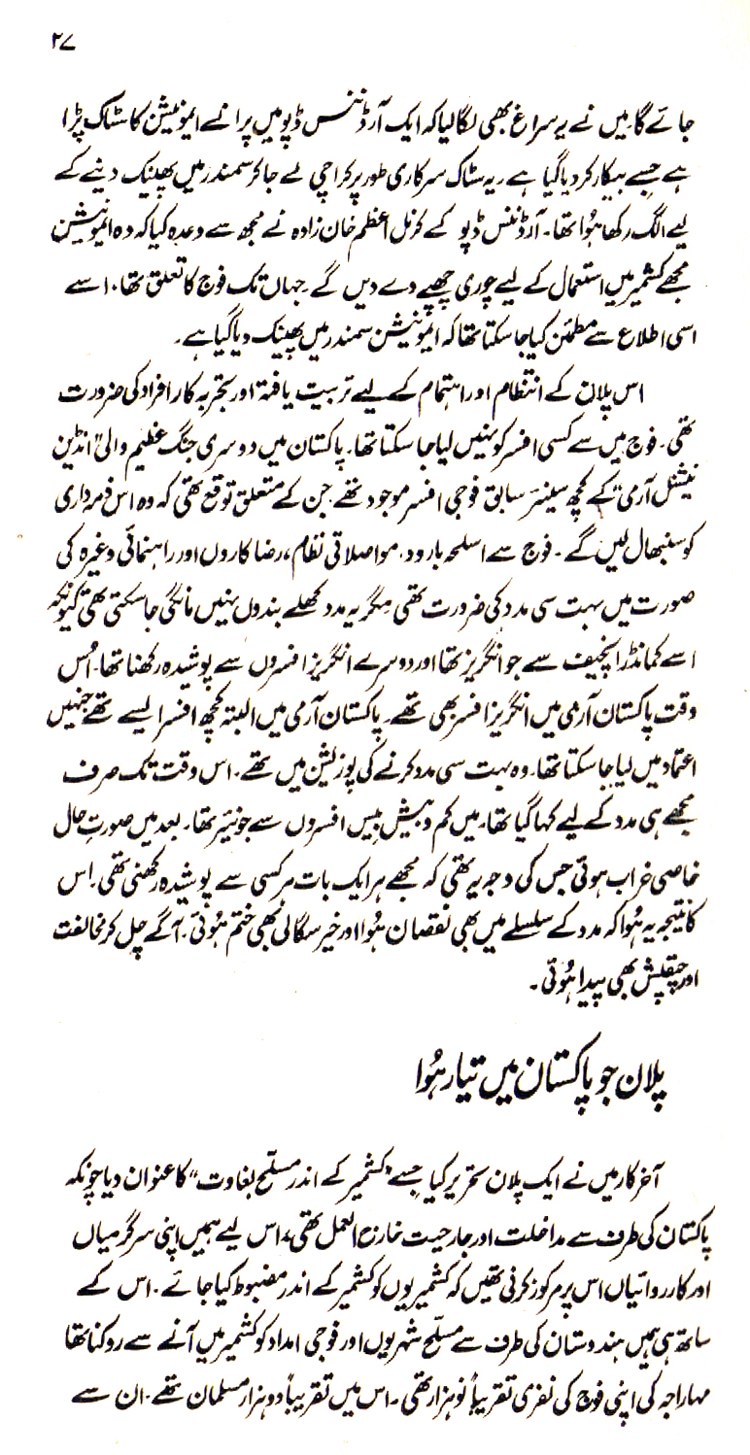 ۲۷
جائے گا۔ میں نے یہ سراغ بھی لگا لیا کہ ایک آرڈننس ڈپو میں پرانے ایمونیشن کا سٹاک پڑا
ہے جسے بیکار کر دیا گیا ہے۔ یہ سٹاک سرکاری طور پر کراچی لے جا کر سمندر میں پھینک دینے کے
لیے الگ رکھا ہُوا تھا۔ آرڈننس ڈپو کے کرنل اعظم خان زادہ نے مجھ سے وعدہ کیا کہ وہ ایمونیشن
مجھے کشمیر میں استعمال کے لیے چوری چھپے دے دیں گے۔ جہاں تک فوج کا تعلق تھا، اسے
اسی اطلاع سے مطمئن کیا جا سکتا تھا کہ ایمونیشن سمندر میں پھینک دیا گیا ہے۔
اس پلان کے انتظام اور اہتمام کے لیے تربیت یافتہ اور تجربہ کار افراد کی ضرورت
تھی۔ فوج میں سے کسی افسر کو نہیں لیا جا سکتا تھا۔ پاکستان میں دوسری جنگ عظیم والی "انڈین
نیشنل آرمی" کے کچھ سینئر سابق فوجی افسر موجود تھے جن کے متعلق توقع تھی کہ وہ اس ذمہ داری
کو سنبھال لیں گے۔ فوج سے اسلحہ بارود، مواصلاتی نظام، رضا کاروں اور راہنمائی وغیرہ کی
صورت میں بہت سی مدد کی ضرورت تھی مگر یہ مدد کھلے بندوں نہیں مانگی جا سکتی تھی کیونکہ
اسے کمانڈر انچیف سے جو انگریز تھا اور دوسرے انگریز افسروں سے پوشیدہ رکھنا تھا۔ اُس
وقت پاکستان آرمی میں انگریز افسر بھی تھے۔ پاکستان آرمی میں البتہ کچھ افسر ایسے تھے جنہیں
اعتماد میں لیا جا سکتا تھا۔ وہ بہت سی مدد کرنے کی پوزیشن میں تھے۔ اس وقت تک صرف
مجھے ہی مدد کے لیے کہا گیا تھا۔ میں کم و بیش بیس افسروں سے جونیئر تھا۔ بعد میں صورتِ حال
خاصی خراب ہوئی جس کی وجہ یہ تھی کہ مجھے ہر ایک بات ہر کسی سے پوشیدہ رکھنی تھی۔ اس
کا نتیجہ یہ ہُوا کہ مدد کے سلسلے میں بھی نقصان ہُوا اور خیر سگالی بھی ختم ہُوئی۔ آگے چل کر مخالفت
اور چپقلش بھی پیدا ہُوئی۔
پلان جو پاکستان میں تیار ہُوا
آخر کار میں نے ایک پلان تحریر کیا جسے "کشمیر کے اندر مسلّح بغاوت" کا عنوان دیا چونکہ
پاکستان کی طرف سے مداخلت اور جارحیت خارج از عمل تھی، اس لیے ہمیں اپنی سرگرمیاں
اور کارروائیاں اس پر مرکوز کرنی تھیں کہ کشمیریوں کو کشمیر کے اندر مضبوط کیا جائے۔ اس کے
ساتھ ہی ہمیں ہندوستان کی طرف سے مسلّح شہریوں اور فوجی امداد کو کشمیر میں آنے سے روکنا تھا
مہاراجہ کی اپنی فوج کی نفری تقریباً نو ہزار تھی۔ اس میں تقریباً دو ہزار مسلمان تھے۔ ان سے